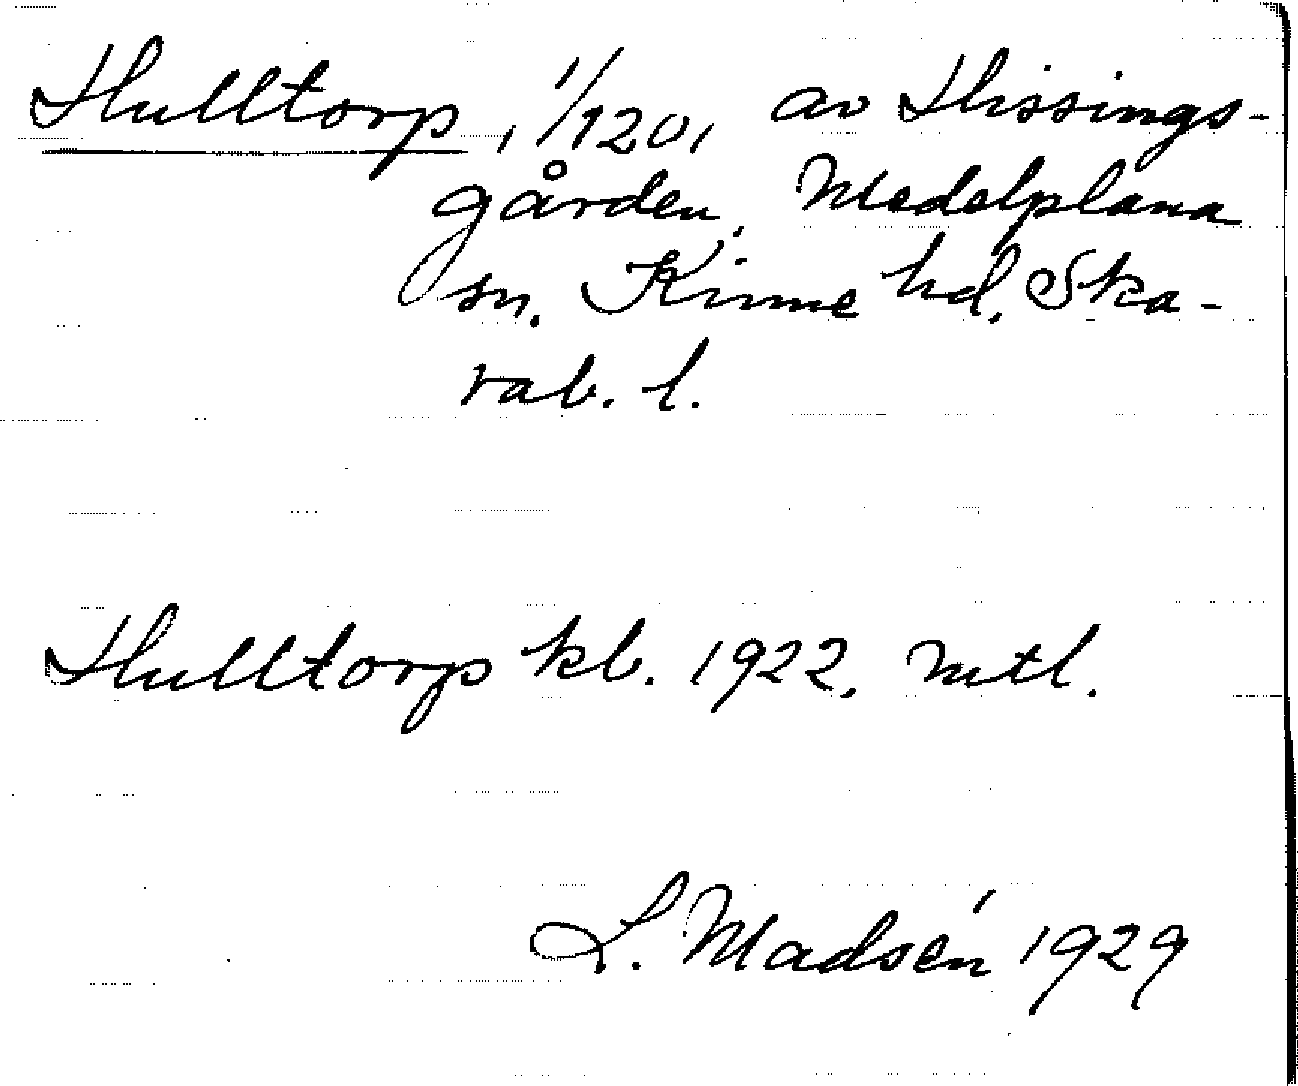 Hulltorp, 1/120, av Hissings-
gården, Medelplana
sn. Kinne hd, Ska-
rab. l.
Hulltorp kb. 1922. mtl.
L. Madsén 1929